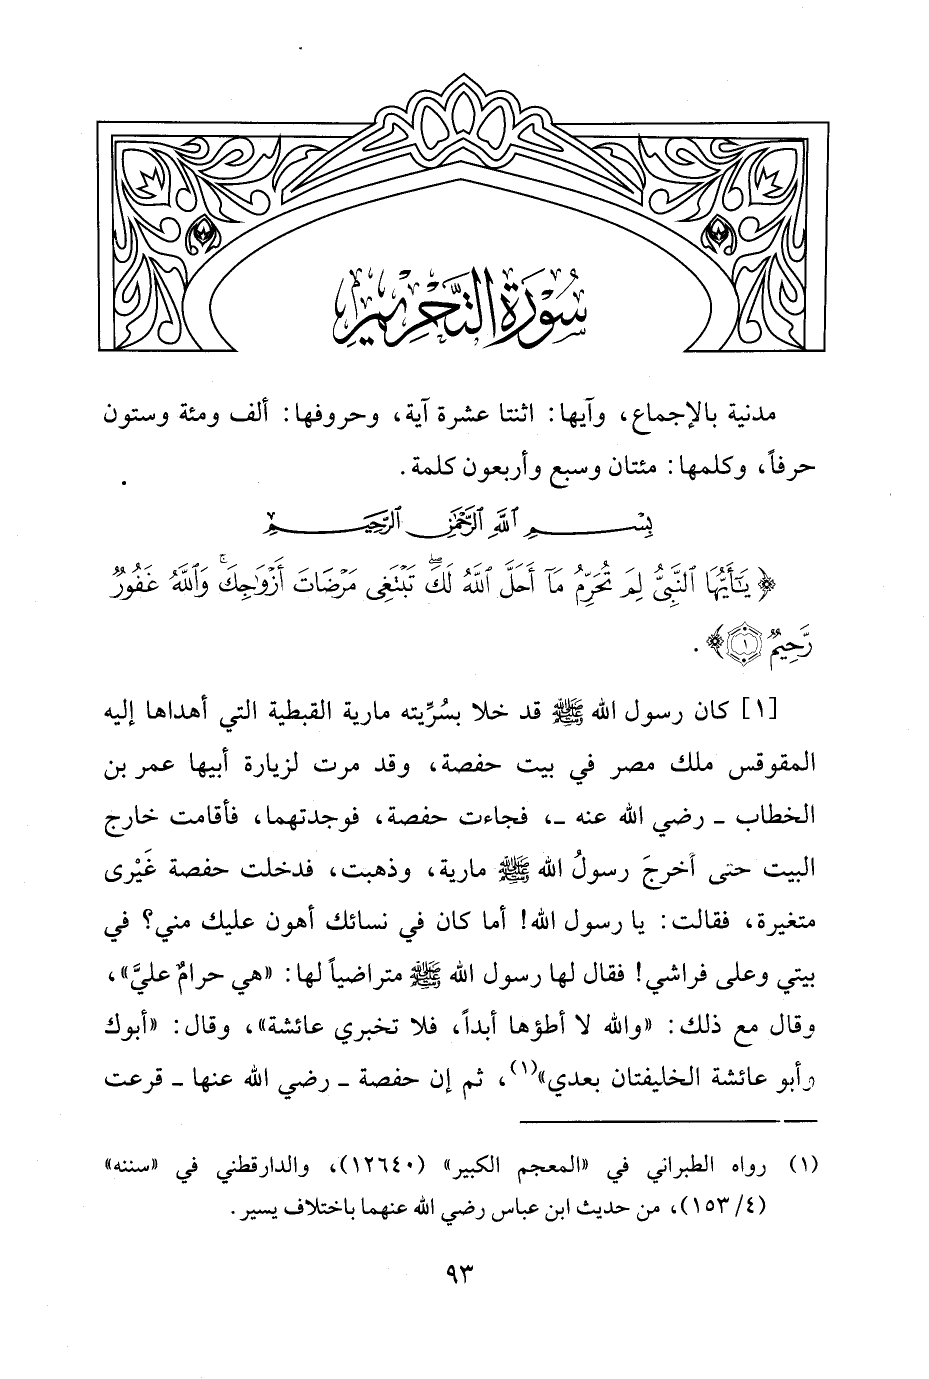 سُورَةُ التَّحْرِيمِ
مدنية بالإجماع، وآيها: اثنتا عشرة آية، وحروفها: ألف ومئة وستون
حرفاً، وكلمها: مئتان وسبع وأربعون كلمة.
بِسْمِ ٱللَّهِ ٱلرَّحْمَٰنِ ٱلرَّحِيمِ
﴿يَٰٓأَيُّهَا ٱلنَّبِىُّ لِمَ تُحَرِّمُ مَآ أَحَلَّ ٱللَّهُ لَكَ ۖ تَبْتَغِى مَرْضَاتَ أَزْوَٰجِكَ ۚ وَٱللَّهُ غَفُورٌ
رَّحِيمٌ ١﴾.
[١] كان رسول الله ﷺ قد خلا بسُرِّيته مارية القبطية التي أهداها إليه
المقوقس ملك مصر في بيت حفصة، وقد مرت لزيارة أبيها عمر بن
الخطاب ـ رضي الله عنه ـ، فجاءت حفصة، فوجدتهما، فأقامت خارج
البيت حتى أخرجَ رسولُ الله ﷺ مارية، وذهبت، فدخلت حفصة غَيْرى
متغيرة، فقالت: يا رسول الله! أما كان في نسائك أهون عليك مني؟ في
بيتي وعلى فراشي! فقال لها رسول الله ﷺ متراضياً لها: «هي حرامٌ عليَّ»،
وقال مع ذلك: «والله لا أطؤها أبداً، فلا تخبري عائشة»، وقال: «أبوك
وأبو عائشة الخليفتان بعدي»(١)، ثم إن حفصة ـ رضي الله عنها ـ قرعت
(١) رواه الطبراني في «المعجم الكبير» (١٢٦٤٠)، والدارقطني في «سننه»
(٤/ ١٥٣)، من حديث ابن عباس رضي الله عنهما باختلاف يسير.
٩٣